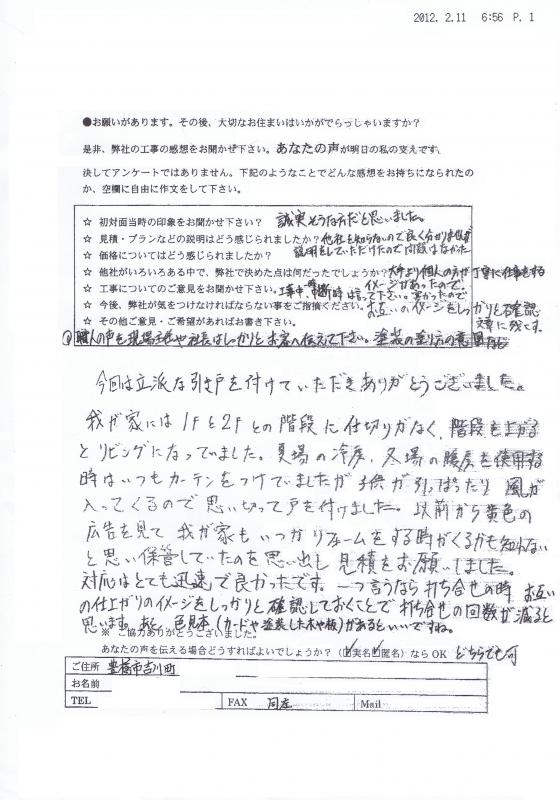 2012. 2.11 6:56 P. 1
●お願いがあります。その後、大切なお住まいはいかがでらっしゃいますか?
是非、弊社の工事の感想をお聞かせ下さい。あなたの声が明日の私の支えです。
決してアンケートではありません。下記のようなことでどんな感想をお持ちになられたの
か、空欄に自由に作文をして下さい。
☆ 初対面当時の印象をお聞かせ下さい? 誠実そうな方だと思いました。
☆ 見積・プランなどの説明はどう感じられましたか? 他社を知らないので良く分かりませんが
☆ 価格についてはどう感じましたか? 説明をしていただけたので問題はなかった
☆ 他社がいろいろある中で、弊社で決めた点は何だったでしょうか? 大手より個人の方が丁寧に仕事をする
イメージがあったので。
☆ 工事についてのご意見をお聞かせ下さい。 工事中、時は言って下さい。寒かったので
☆ 今後、弊社が気をつけなければならない事をご指摘ください。 お互いのイメージをしっかりと確認
文章に残す。
☆ その他ご意見・ご希望があればお書き下さい。
職人の声を現場主任や社長はしっかりとお客へ伝えて下さい。塗装の塗り方の意図など
今回は立派な引き戸を付けていただきありがとうございました。
我が家には1Fと2Fとの階段に仕切りがなく、階段を上がる
とリビングになっていました。夏場の冷房、冬場の暖房を使用する
時はいつもカーテンをつけていましたが子供が引っぱったり 風が
入ってくるので思い切って戸を付けました。以前から黄色の
広告を見て 我が家もいつかリフォームをする時がくるかも知れない
と思い保管していたのを思い出し見積をお願いしました。
対応はとても迅速で良かったです。一つ言うなら打ち合せの時、お互い
の仕上がりのイメージをしっかりと確認しておくことで打ち合せの回数が減ると
思います。あと、色見本(カードや塗装した木や板)があるといいですね。
※ ご協力ありがとうございました。
あなたの声を伝える場合どうすればよいでしょうか? (実名 匿名) なら OK どちらでも可
ご住所 豊橋市吉川町
お名前
TEL FAX 同左 Mail